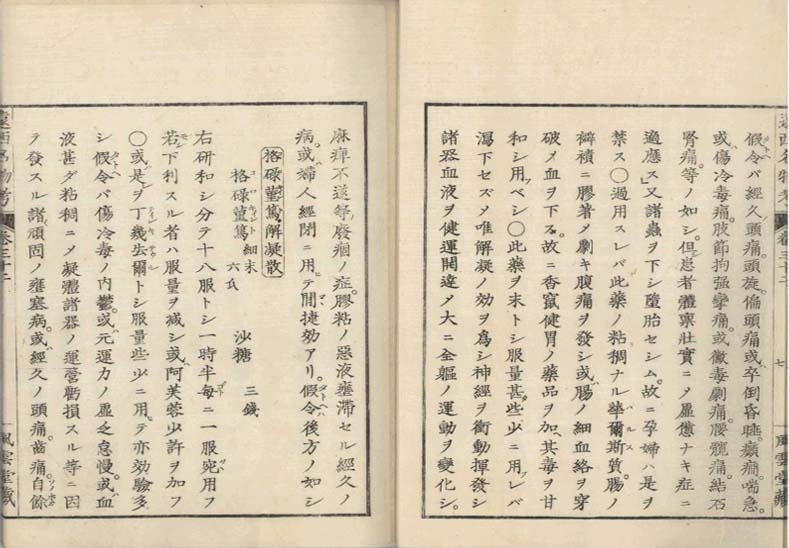 遠西名物考 卷三十二 七 風雲堂藏
假令バ經久ノ頭痛。頭旋。偏頭痛。或ハ卒倒昏睡。癲癇。喘急。
或ハ傷冷毒痛。肢節拘强攣痛。或ハ黴毒劇痛。腰髖痛。結石
腎痛。等ノ如シ。但シ患者體禀壯實ニ〆虛憊ナキ症ニ
適應ス」又諸蟲ヲ下シ墮胎セシム。故ニ孕婦ハ是ヲ
禁ス○過用スレバ此藥ノ粘稠ナル華爾斯質。腸ノ
襞積ニ膠著〆劇キ腹痛ヲ發シ或ハ腸ノ細血絡ヲ穿
破〆血ヲ下ス。故ニ香竄健胃ノ藥品ヲ加ヘ其毒ヲ甘
和シ用ベシ○此藥ヲ末トシ服量甚ダ些少ニ用レバ
瀉下セズ〆唯解凝ノ効ヲ爲シ神經ヲ衝動揮發シ
諸器血液ヲ健運開達〆大ニ全軀ノ運動ヲ變化シ。
麻痺不遂等廢痼ノ症。膠粘ノ惡液壅滯セル經久ノ
病。或ハ婦人經閉ニ用テ間捷効アリ。假令ヘバ後方ノ如シ
格碌菫篤解凝散
格碌菫篤 細末 六氏 沙糖 三錢
右研和シ分テ十八服トシ一時半每ニ一服宛用フ
若シ下利スル者ハ服量ヲ減シ或ハ阿芙蓉少許ヲ加フ
○或ハ是ヲ丁幾去爾トシ服量些少ニ用テ亦効驗多
シ假令バ傷冷毒ノ內鬱。或ハ元運力ノ虛乏怠慢。或ハ血
液甚ダ粘稠ニ〆凝體諸器ノ運營虧損スル等ニ因
テ發スル諸頑固ノ壅塞病。或ハ經久ノ頭痛。齒痛。自餘
遠西名物考 卷三十二 風雲堂藏